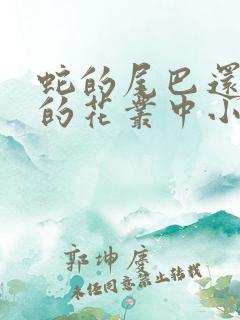 蛇的尾巴還
的花叢中小
郭坤
未任同意禁止转载